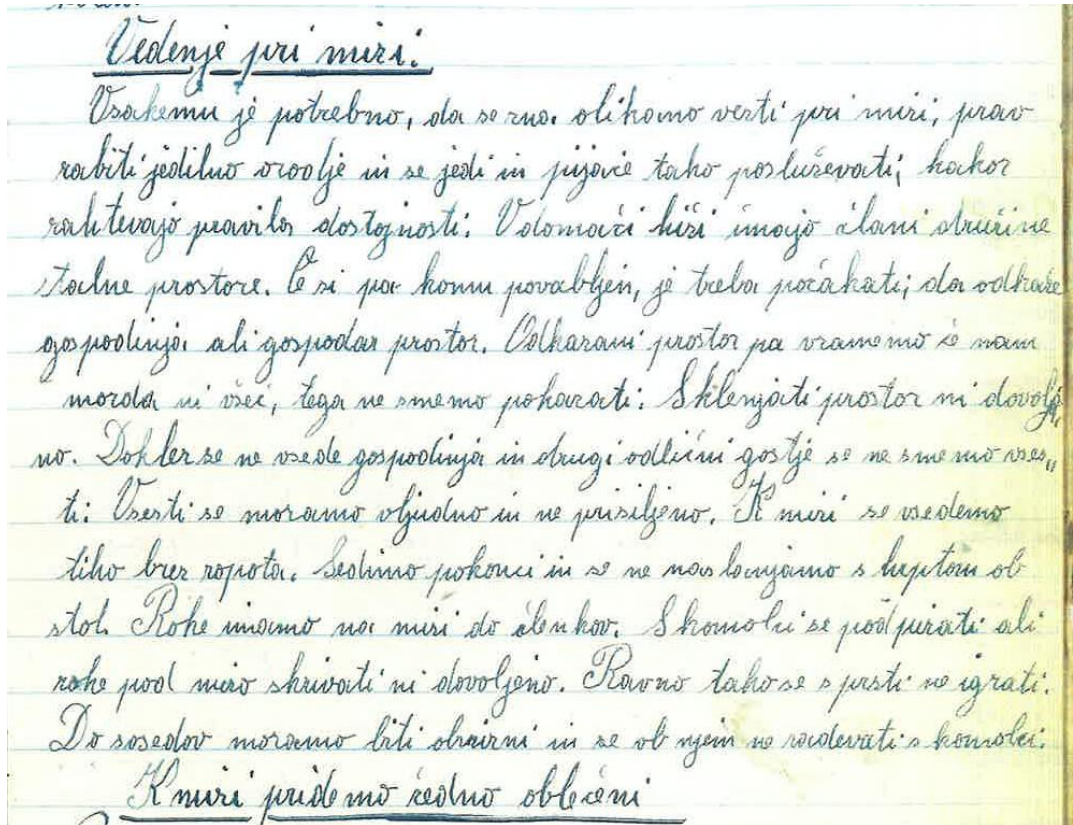 Vedenje pri mizi.
Vsakemu je potrebno, da se zna olikano vesti pri mizi, prav
rabiti jedilno orodje in se jedi in pijače tako posluževati, kakor
zahtevajo pravila dostojnosti. V domači hiši imajo člani družine
stalne prostore. Če si pa komu povabljen, je treba počakati, da odkaže
gospodinja ali gospodar prostor. Odkazani prostor pa vzamemo če nam
morda ni všeč, tega ne smemo pokazati. Sklenjati prostor ni dovolj„
no. Dokler se ne vsede gospodinja in drugi odlični gostje se ne smemo vses„
ti. Vsesti se moramo vljudno in ne prisiljeno. K mizi se vsedemo
tiho brez ropota. Sedimo pokonci in se ne naslanjamo s heptom ob
stol. Roke imamo na mizi do členkov. S komolci se podpirati ali
roke pod mizo skrivati ni dovoljeno. Ravno tako se s prsti ne igrati.
Do sosedov moramo biti obzirni in se ob njem ne zadevati s komolci.
K mizi pridemo čedno oblečeni